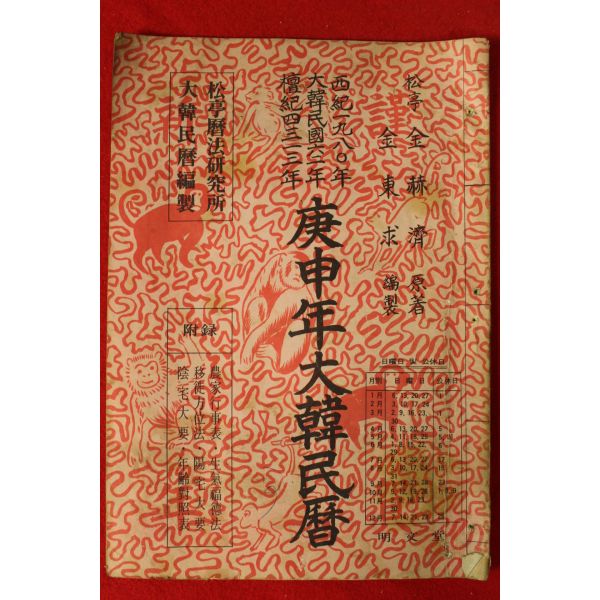 松亭 金赫濟 原著
謹
金東求 編製
西紀一九八〇年
大韓民國六二年
檀紀四三一三年
庚申年大韓民曆
松亭曆法研究所
大韓民曆編製
附録
農家行事表 生氣福德法
移徙方位法 陽宅大要
陰宅大要 年齡對照表
日曜日 및 公休日
月別 日曜日 公休日
1月 6, 13, 20, 27
2月 3, 10, 17, 24
3月 2, 9, 16, 23,
30
4月 6, 13, 20, 27
5月 4, 11, 18, 25
6月 1, 8, 15, 22,
29
7月 6, 13, 20, 27
8月 3, 10, 17, 24,
9月
10月
11月
30
12月 7, 14, 21, 28
明文堂